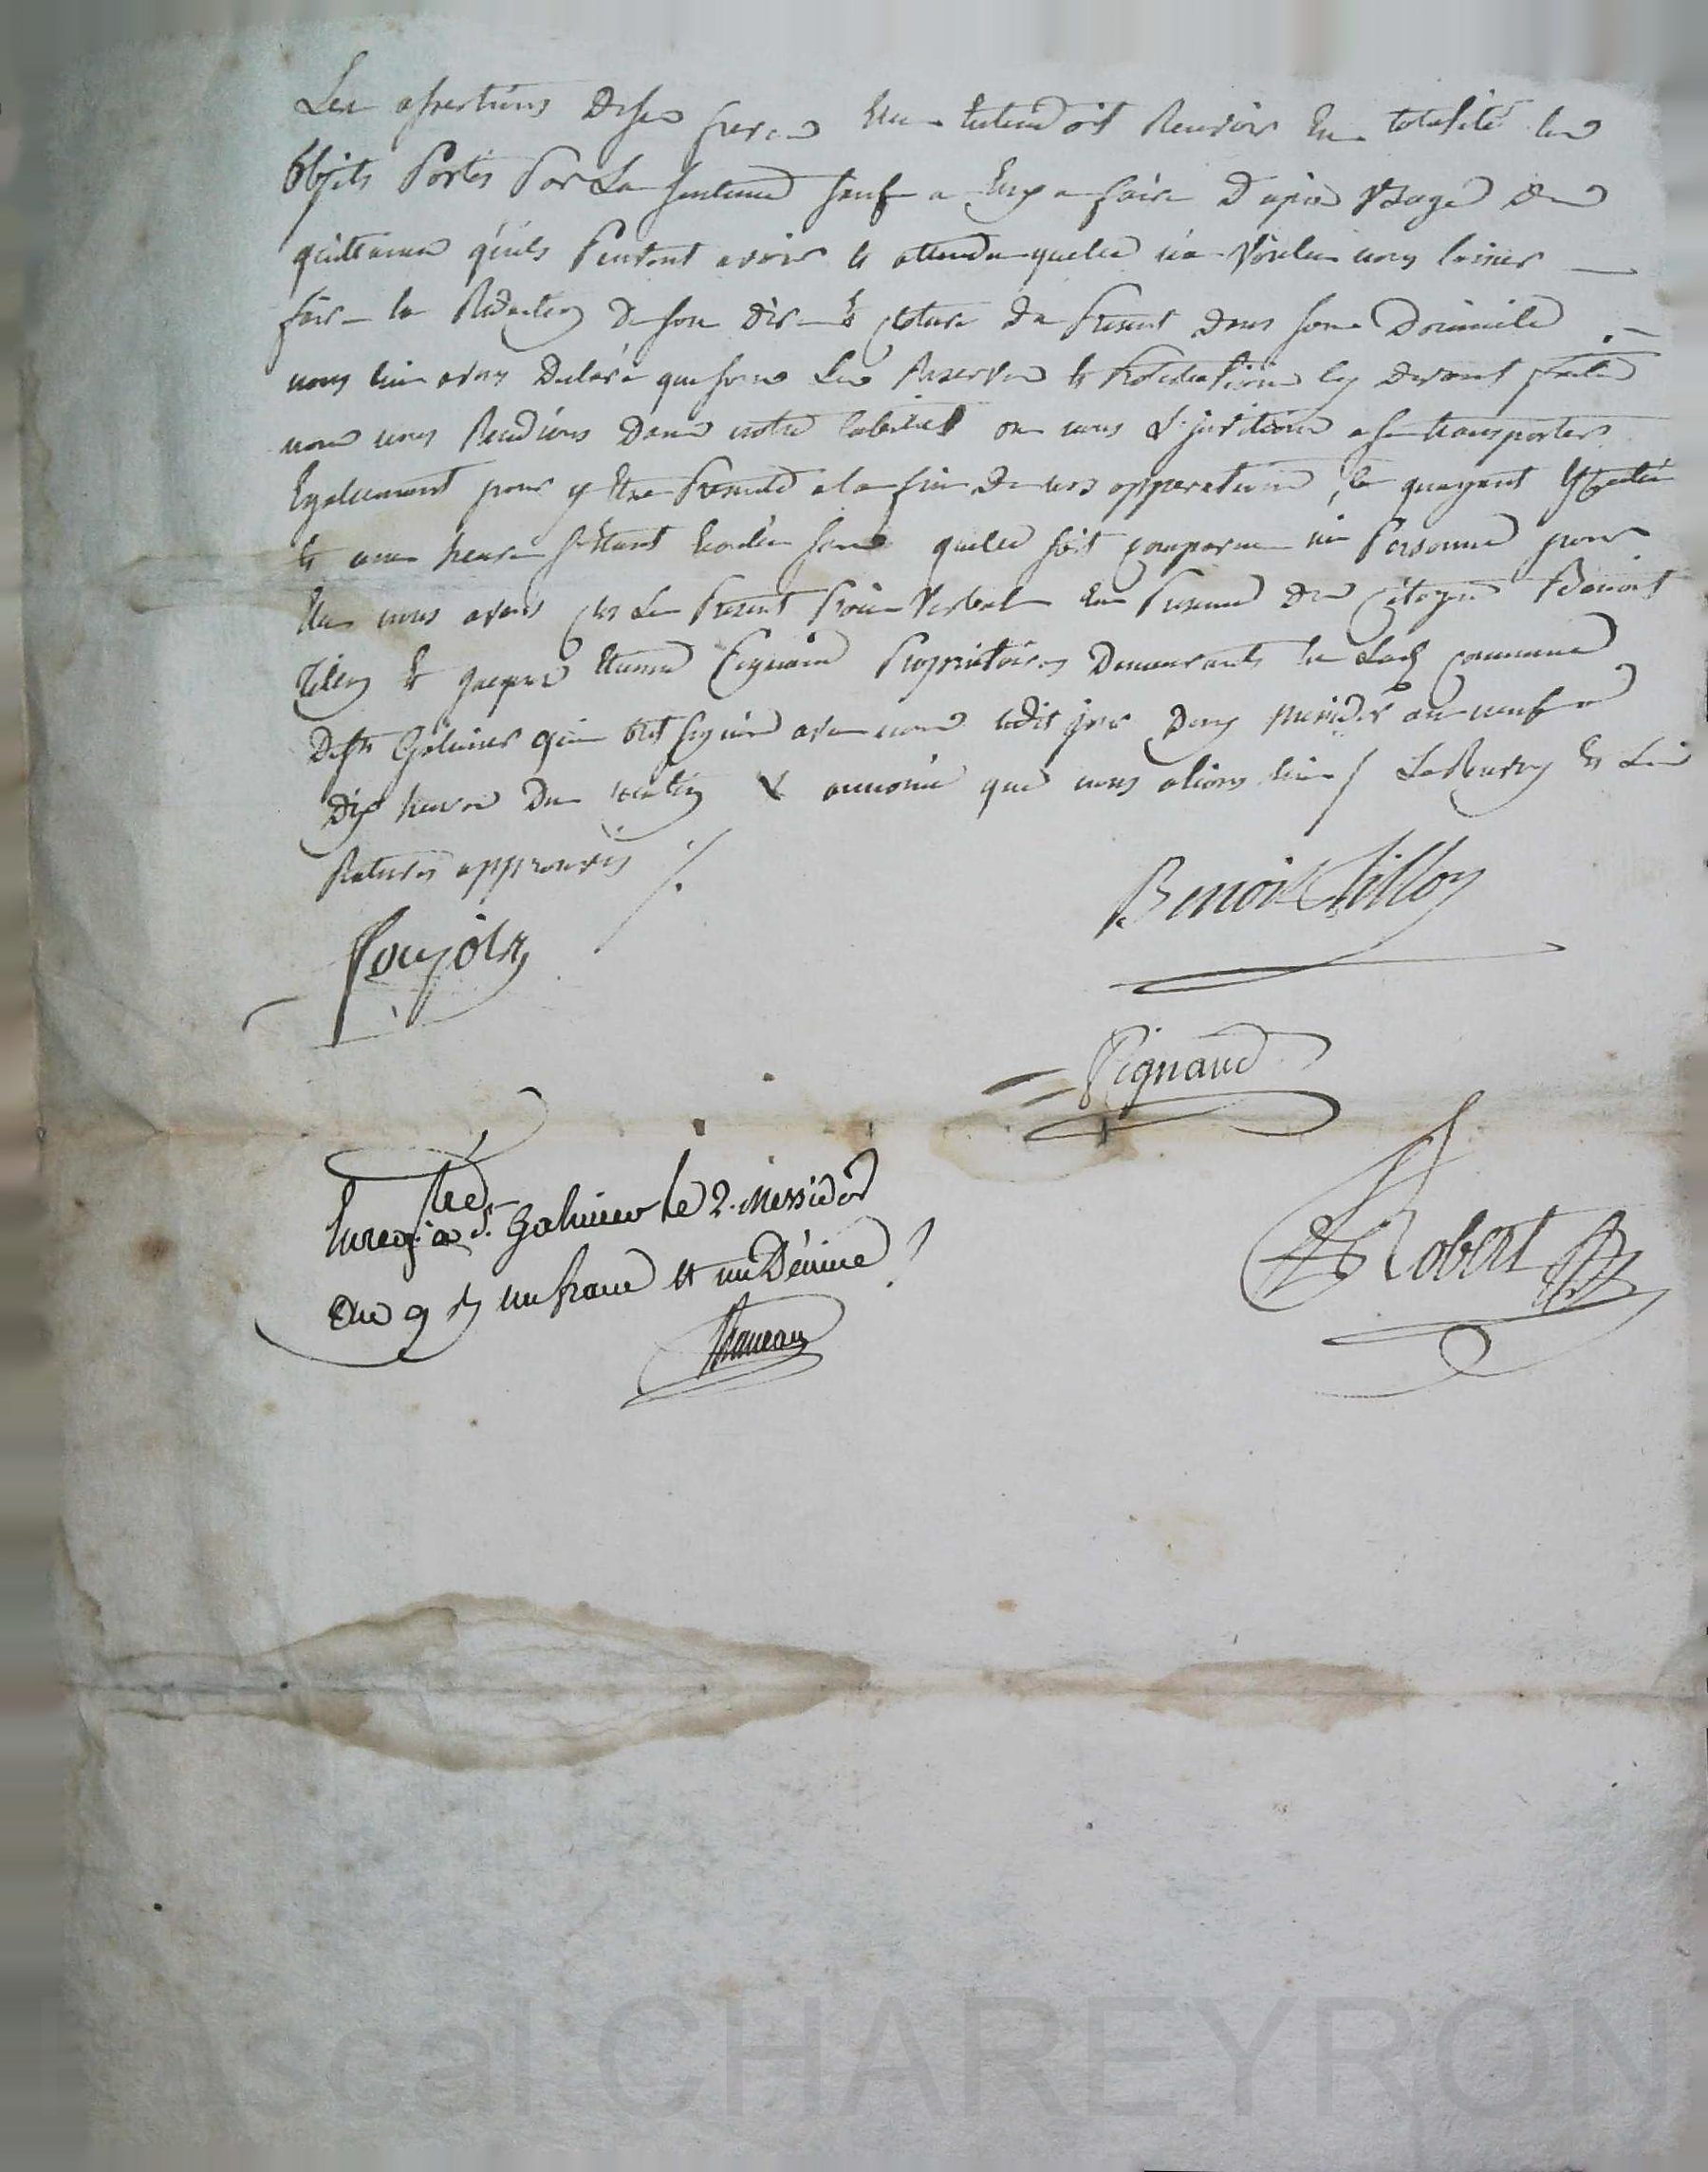 Les assertions de ses freres elle entend ois Recevoir En totalité les
Objets Portés Par La Sentence Sauf a Eux a faire d'apres Usage des
quittances qu'ils Peuvent avoir & attendu quelle n'a Voulu nous laisser
faire la Redaction de son dire & cloture du Present dans son Domicile
nous lui avons Declaré que sous Les Reserves & Protestations cy devant faites
nous nous Rendions Dans notre Cabinet ou nous L'invitions a se transporter
Egalement pour y Etre Presente a la fin de nos opperations, Ce quayant
& une heure s'Etant Ecoulée sans quelle soit comparue ni Personne pour
Elle nous avons clos Le Present Procès Verbal En Presence des Citoyens Benoit
Tilloy & Jacques Etienne Pignaud Proprietaires Demeurants commune
De St Galmier qui Ont signé avec nous ledit jour Deux Messidor an neuf a
Dix heures Du matin & annoncé que nous alions / &
Ratures approuvés ./.
Benoit Tilloy
Poujols
Pignaud
Enregtré à St Galmier le 2. Messidor
an 9 un franc et un Décime
Robert